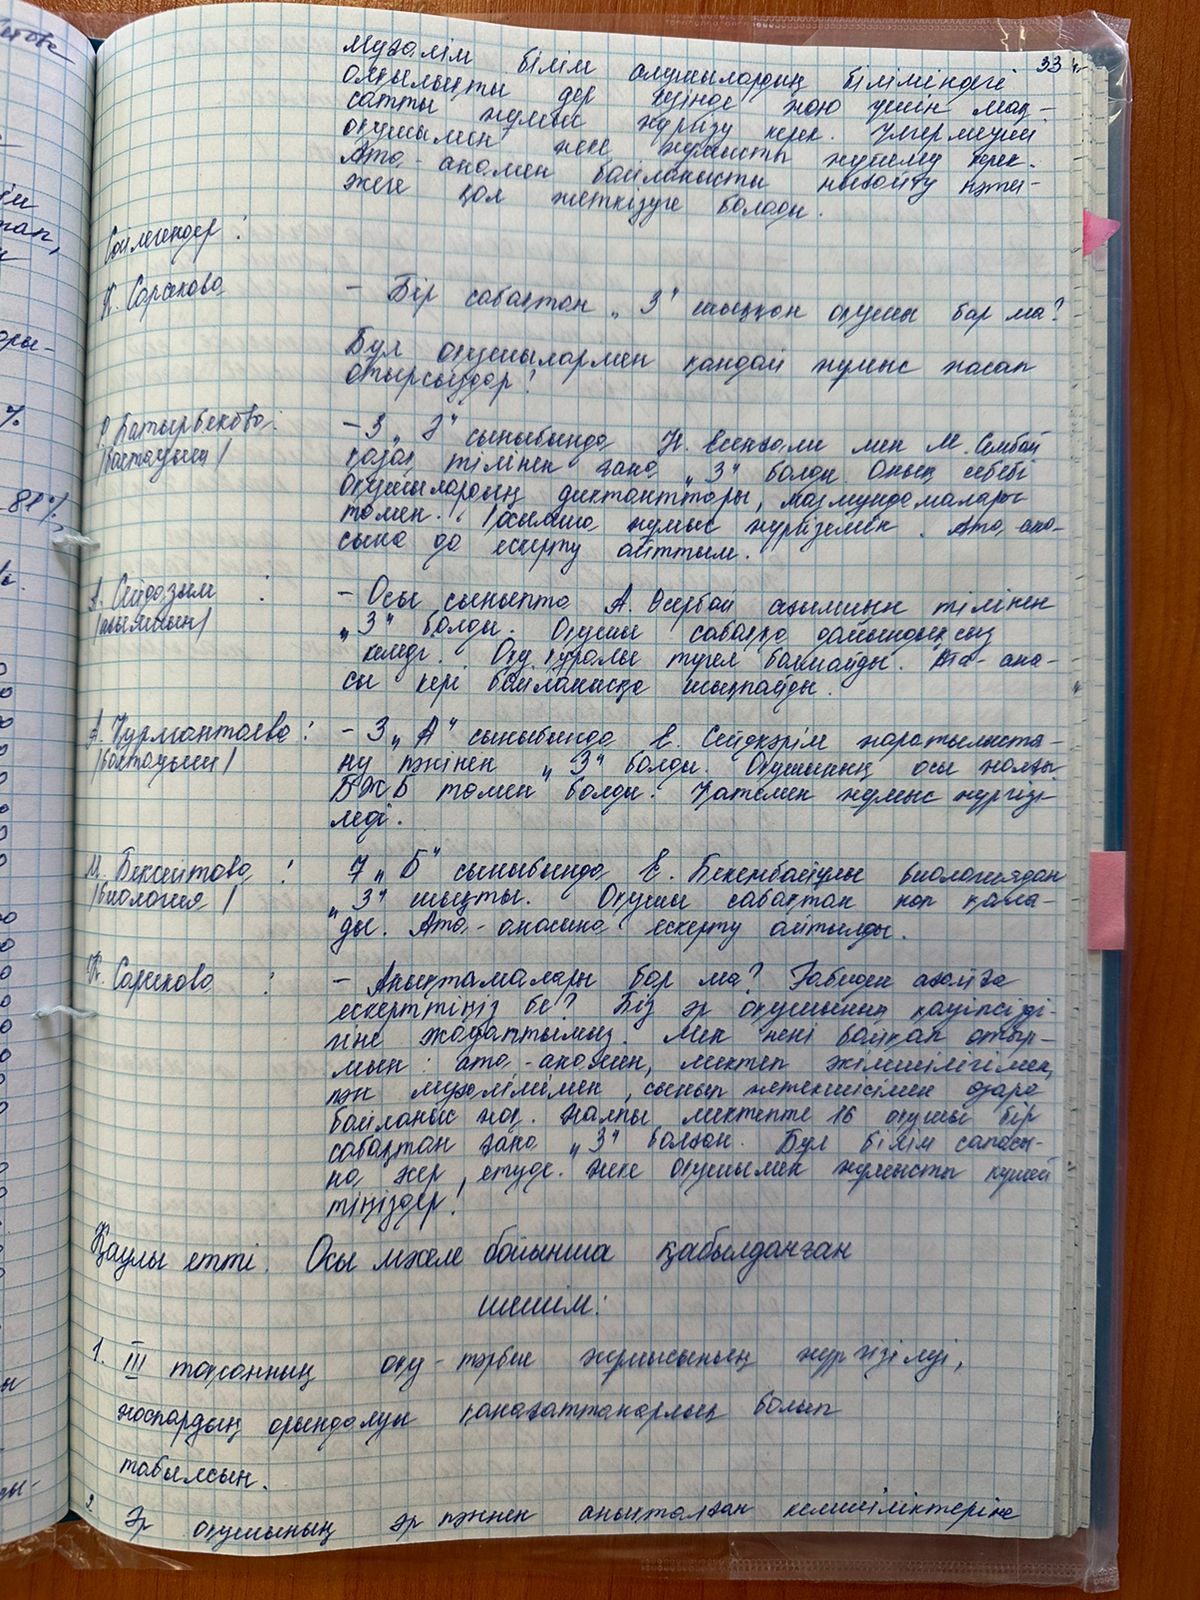 33
мұғалім білім алушылардың біліміндегі
олқылықты дер кезінде жою үшін мақ-
сатты жұмыс жүргізу керек. Үлгермеуші
оқушымен жеке жұмысты жүйелеу керек.
Ата-анамен байланысты нығайту нәти-
жеге қол жеткізуге болады.
Сөйлегендер:
К. Сарсекова - Бір сабақтан "3" шыққан оқушы бар ма?
Бұл оқушылармен қандай жұмыс жасап
отырсыздар?
Батырбекова: - 3 "Ә" сыныбында Н. мен М.
/бастауыш/ қазақ тілінен ғана "3" болды. Оның себебі
оқушылардың диктанттары, мазмұндамалары
төмен. Қосымша жұмыс жүргіземін. Ата, ана-
сына да ескерту айттым.
А. Сейдазым : - Осы сыныпта А. ағылшын тілінен
/ағылшын/ "3" болды. Оқушы сабаққа дайындықсыз
келеді. Оқу құралы түгел болмайды. Ата-ана-
сы кері байланысқа шықпайды.
А. Нурмантаева: - 3 "А" сыныбында Е. Сейдкәрім жаратылыста-
/бастауыш/ ну пәнінен "3" болды. Оқушының осы жолғы
БЖБ төмен болды. Қатемен жұмыс жүргізі-
леді.
М. Бексеитова : 7 "Б" сыныбында Е. Бекембайұлы биологиядан
/биология/ "3" шықты. Оқушы сабақтан көп қала-
ды. Ата-анасына ескерту айтылды.
К. Сарсекова : - Анықтамалары бар ма? Ғабиден ағайға
ескерттіңіз бе? Біз әр оқушының қауіпсізді-
гіне жауаптымыз. Мен нені байқап отыр-
мын: ата-анамен, мектеп әкімшілігімен,
пән мұғалімімен, сынып жетекшісімен өзара
байланыс жоқ. Жалпы мектепте 16 оқушы бір
сабақтан ғана "3" болған. Бұл білім сапасы-
на әсер етуде. Жеке оқушымен жұмысты күшей
тіңіздер!
Қаулы етті. Осы мәселе бойынша қабылданған
шешім:
1. III тоқсанның оқу-тәрбие жұмысының жүргізілуі,
жоспардың орындалуы қанағаттанарлық болып
табылсын.
2. Әр оқушының әр пәннен анықталған кемшіліктеріне